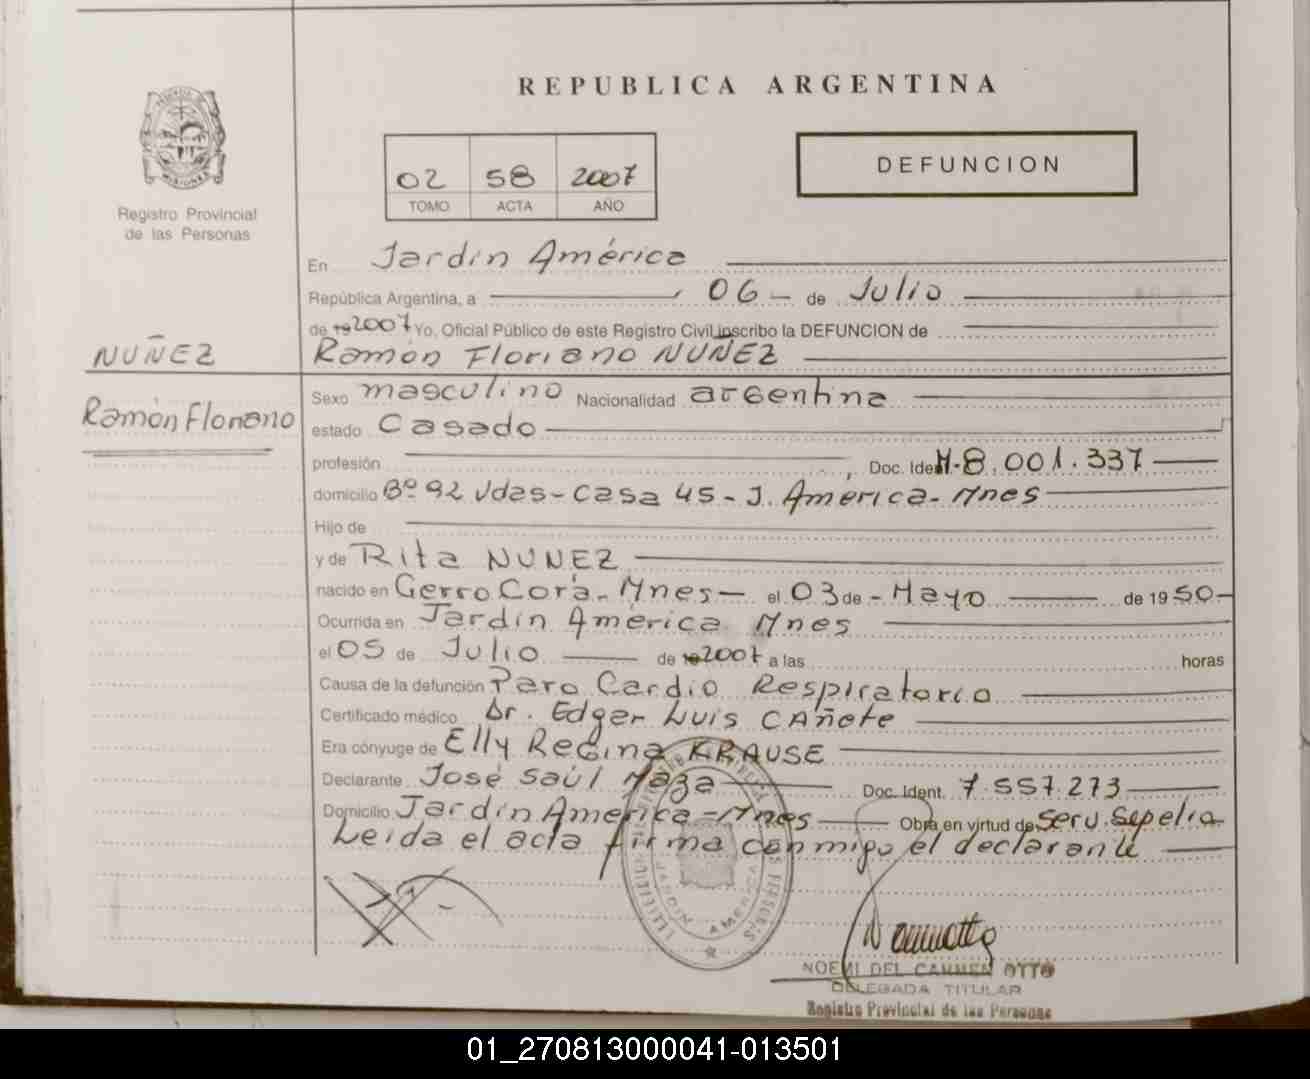 REPUBLICA ARGENTINA
02 58 2007
TOMO ACTA AÑO
DEFUNCION
Registro Provincial
de las Personas
NUÑEZ
Ramón Floriano
En Jardín América
República Argentina, a 06 - de Julio
de 19 2007 Yo, Oficial Público de este Registro Civil inscribo la DEFUNCION de
Ramón Floriano NUÑEZ
Sexo masculino Nacionalidad argentina
estado Casado
profesión , Doc. Ident. M-8.001.337
domicilio Bº 92 Vdas - Casa 45 - J. América - Mnes
Hijo de
y de Rita NUNEZ
nacido en Cerro Corá - Mnes - el 03 de - Mayo de 19 50 -
Ocurrida en Jardín América Mnes
el 05 de Julio de 19 2007 a las horas
Causa de la defunción Paro Cardio Respiratorio
Certificado médico Dr. Edger Luis CAñete
Era cónyuge de Elly Regina KRAUSE
Declarante José Saúl Maza Doc. Ident. 7.557.273
Domicilio Jardín América - Mnes Obra en virtud de Serv. Sepelio.
Leida el acta firma conmigo el declarante
JARDIN AMERICA
NOEMI DEL CARMEN OTTO
DELEGADA TITULAR
Registro Provincial de las Personas
01_270813000041-013501